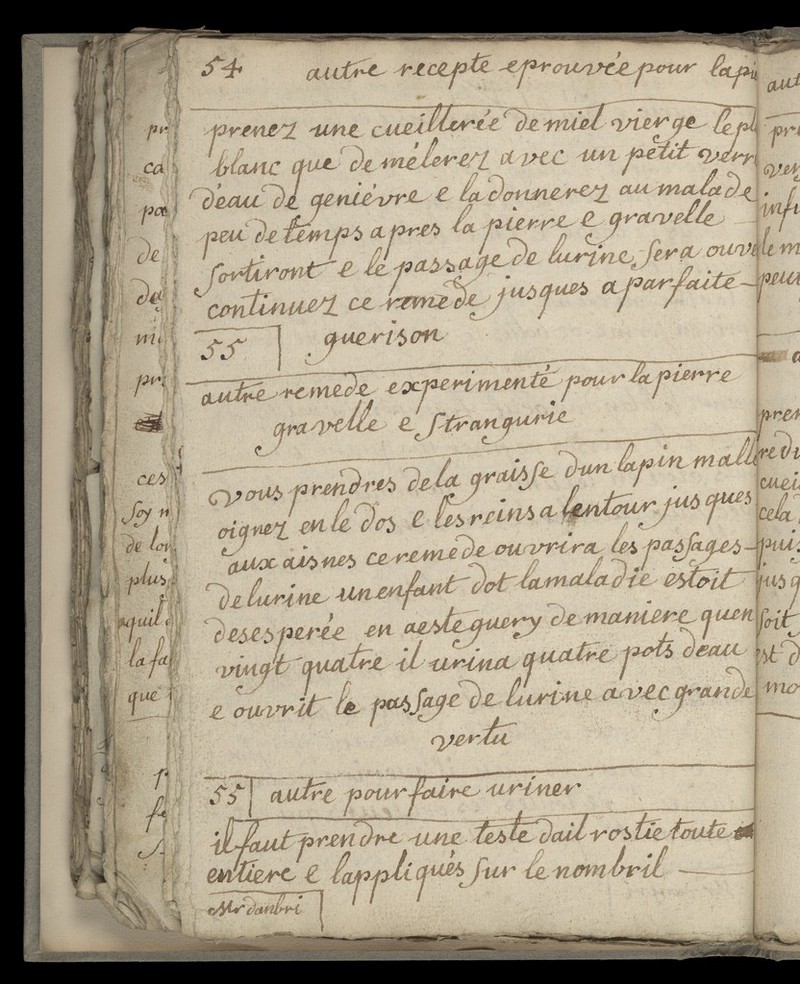 54 autre recepte eprouvée pour lapi
prenez une cueillerée de miel vierge lepl
blanc que demélerez avec un petit verr
déau de geniévre e ladonnerez au malade
peu detemps apres la pierre e gravelle
sortiront e le passage de lurine sera ouve
continuez ce remede jusques aparfaite
guerison
55
autre remede experimenté pour lapierre
gravelle e strangurie
vous prendres dela graisse dun lapin malle
oignez enle dos e lesreins alentour jusques
aux aisnes ceremede ouvrira les passages
delurine unenfant dot lamaladie estoit
desesperée en aesteguery de maniere quen
vingt quatre il urina quatre pots deau
e ouvrit le passage de lurine avec grande
vertu
55 autre pour faire uriner
il faut prendre une teste dail rostie toute
entiere e lappliqués sur le nombril
Mr danbri
pr
ca
pa
de
du
mi
pr
ces
soy n
de lon
plus
aquil
la fa
que
aut
pr
ver
infu
le m
peut
pren
re du
cuei
cela
puis
jusq
soit
st d
mo